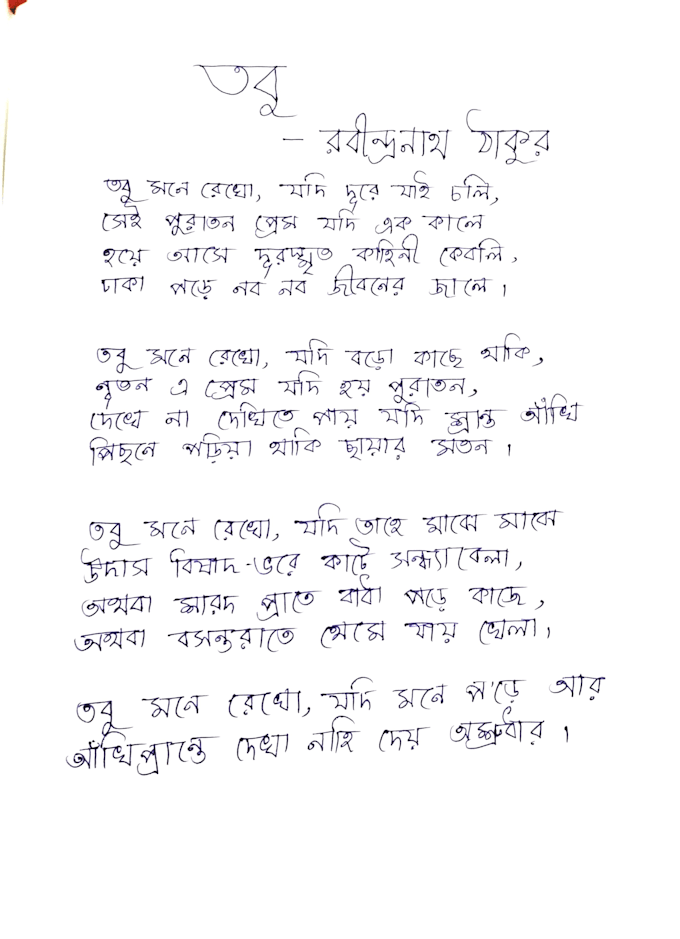 তবু
- রবীন্দ্রনাথ ঠাকুর
তবু মনে রেখো, যদি দূরে যাই চলি,
সেই পুরাতন প্রেম যদি এক কালে
হয়ে আসে দূরস্মৃত কাহিনী কেবলি,
ঢাকা পড়ে নব নব জীবনের জালে।
তবু মনে রেখো, যদি বড়ো কাছে থাকি,
নূতন এ প্রেম যদি হয় পুরাতন,
দেখে না দেখিতে পায় যদি শ্রান্ত আঁখি
পিছনে পড়িয়া থাকি ছায়ার মতন।
তবু মনে রেখো, যদি তাহে মাঝে মাঝে
উদাস বিষাদ-ভরে কাটে সন্ধ্যাবেলা,
অথবা শারদ প্রাতে বাধা পড়ে কাজে,
অথবা বসন্তরাতে থেমে যায় খেলা।
তবু মনে রেখো, যদি মনে প'ড়ে আর
আঁখিপ্রান্তে দেখা নাহি দেয় অশ্রুধার।